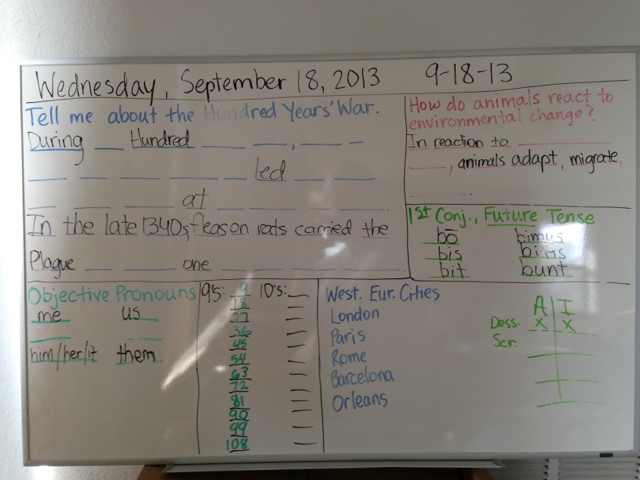 Wednesday, September 18, 2013 9-18-13
Tell me about the Hundred Years' War.
During __ Hundred __ __, __
__ __ __ __ __ led __ __
__ __ __ at __ __ __ __
In the late 1340s, fleas on rats carried the
Plague __ __ one __ __ __ __ __
How do animals react to
environmental change?
In reaction to __
__, animals adapt, migrate,
__.
1st Conj., Future Tense
bō bimus
bis bitis
bit bunt
Objective Pronouns
me us
him/her/it them
9's:
9
18
27
36
45
54
63
72
81
90
99
108
10's:
West. Eur. Cities
London
Paris
Rome
Barcelona
Orleans
A I
Dess. X X
Scr.